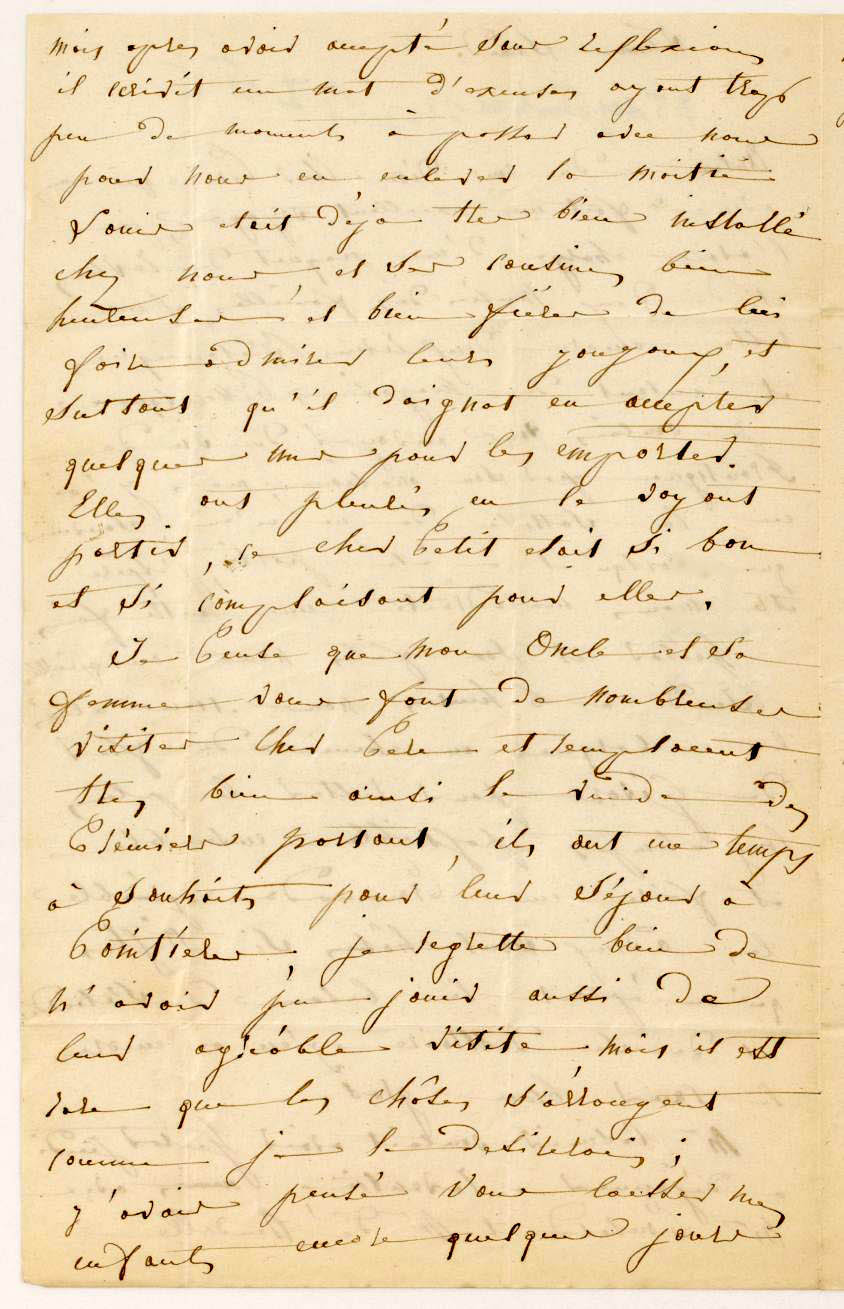 mais apres avoir accepté sans reflexions
il écrivit un mot d'excuses ayant trop
peu de moments à passer avec nous
pour nous en enlever la moitié
Louis etait déja tres bien installé
chez nous, et ses cousines bien
heureuses et bien fières de lui
faire admirer leurs joujoux, et
surtout qu'il daignat en accepter
quelques uns pour les emporter.
Elles ont pleurés en le voyant
partir, ce cher Petit etait si bon
et si complaisant pour elles.
Je Pense que mon Oncle et sa
femme vous font de nombreuses
visites cher Pere et remplacent
tres bien ainsi le vuide des
Prémiers partant, ils ont une temps
à souhaits pour leur séjour à
Poitiers, je regrette bien de
n'avoir pu jouir aussi de
leur agréable visite mais il est
rare que les chôses s'arrangent
comme je le desirerais ;
j'avais pensé vous laisser mes
enfants encore quelques jours